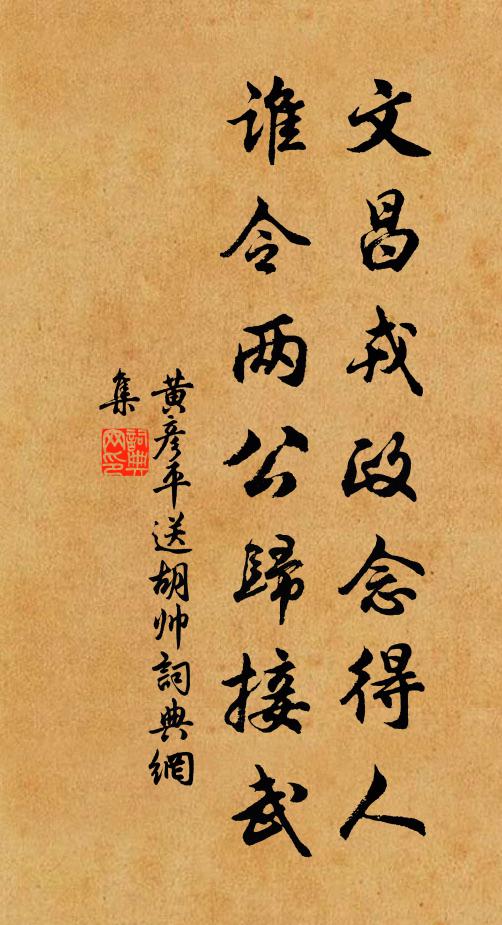 文昌戎政念得人
谁令两公歸接武
黄彦平送胡帅詞典網
集
詞典
网印